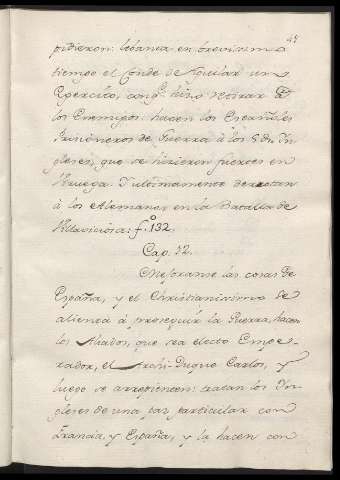 47
pidieron: lebanta en brevissimo
tiempo el Conde de Aguilar un
Egercito, con qe. hizo retirar â
los Enemigos: hacen los Españoles
Prisioneros de Guerra à los 5 dn. In-
gleses, que se hizieron fuertes en
Brivega. I ultimamente derrotan
à los Alemanes en la Batalla de
Villaviciosa: fo. 132.
Cap. 12.
Mejoranse las cosas de
España, y el Christianissimo se
alienta á proseguir la Guerra, hacen
los Aliados, que sea electo Empe-
rador, el Archi-Duque Carlos, y
luego se arrepienten: tratan los In-
gleses de una paz particular con
Francia, y España, y la hacen con